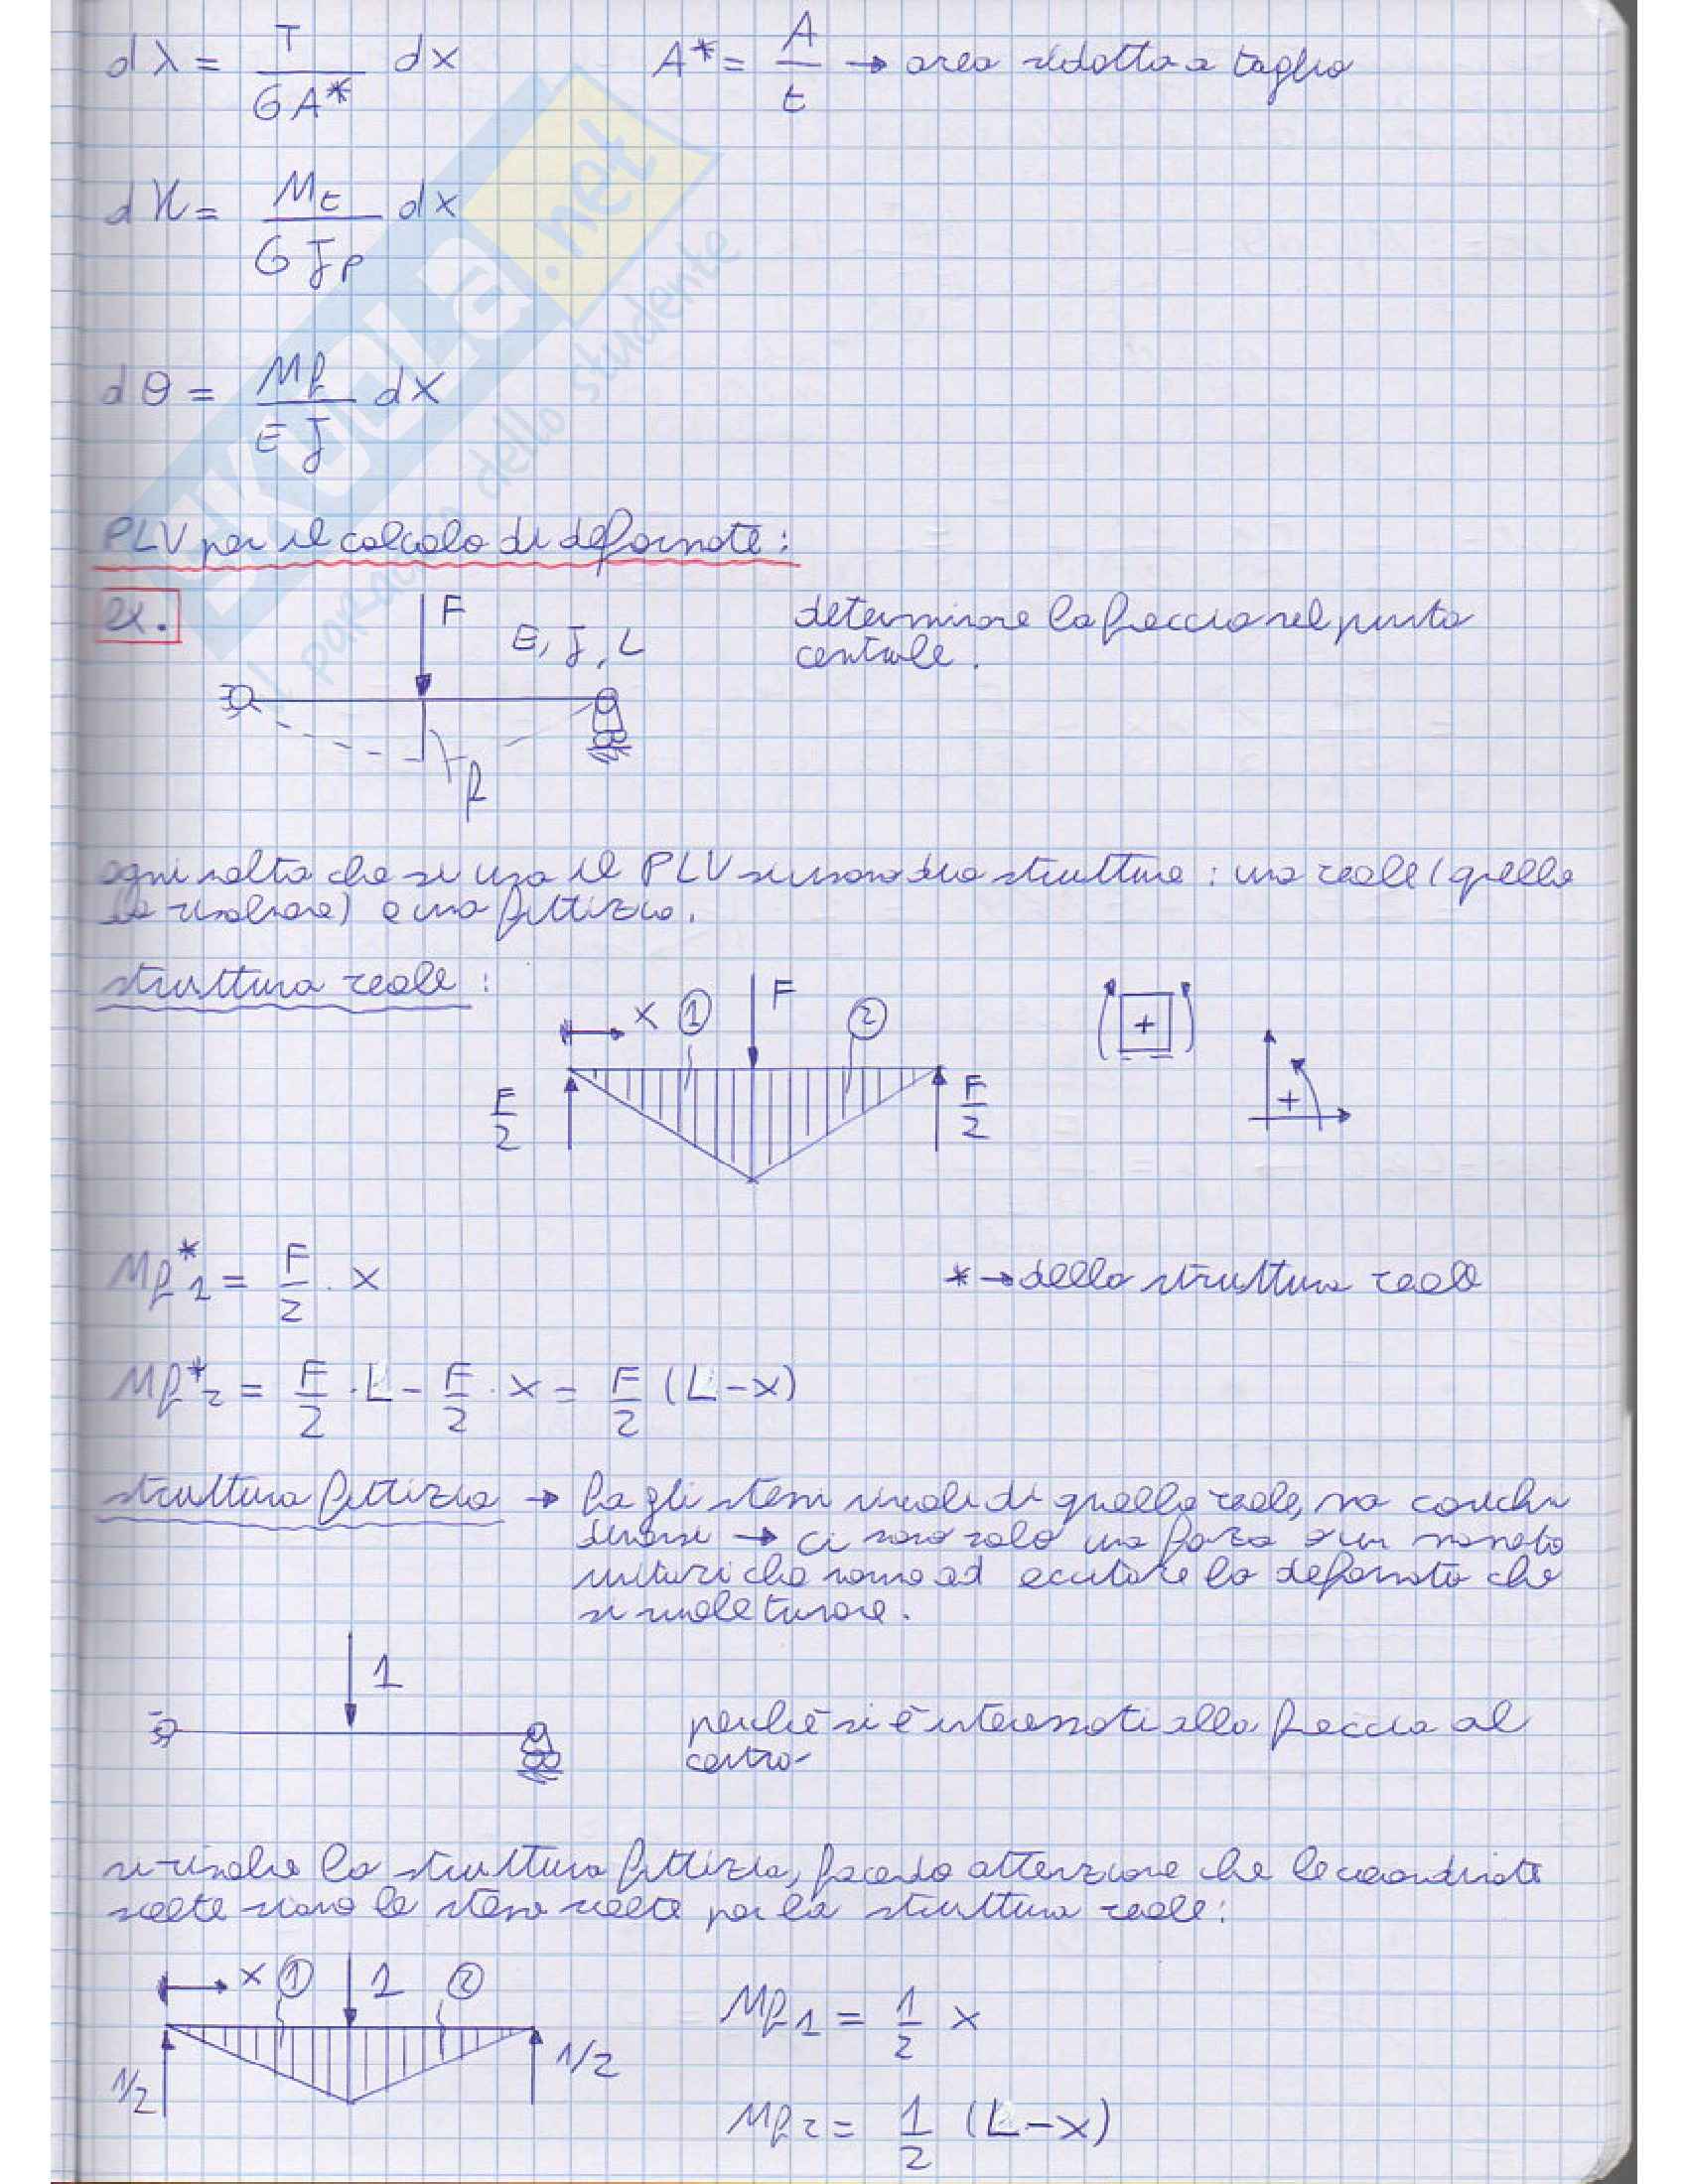 dλ = T / GA* dx    A* = A / t → area ridotta a taglio
dϰ = Mt / G Jp dx
dθ = Mf / E J dx
SKUOLA.net
il par-a- dello studente
PLV per il calcolo di deformate:
ex.
F
E, J, L
determinare la freccia nel punto
centrale.
f
ogni volta che si usa il PLV si usano due strutture: una reale (quella
da risolvere) e una fittizia.
struttura reale:
x 1 F 2
+
F/2 F/2
+
Mf*1 = F/2 · x    * → della struttura reale
Mf*2 = F/2 · L − F/2 · x = F/2 (L−x)
struttura fittizia → ha gli stessi vincoli di quella reale, ma carichi
diversi → ci sono solo una forza o un momento
unitari che vanno ad eccitare la deformata che
si vuole trovare.
1
perché si è interessati alla freccia al
centro
si risolve la struttura fittizia, facendo attenzione che le coordinate
scelte siano le stesse scelte per la struttura reale:
x 1 1 2
1/2 1/2
Mf1 = 1/2 x
Mf2 = 1/2 (L−x)